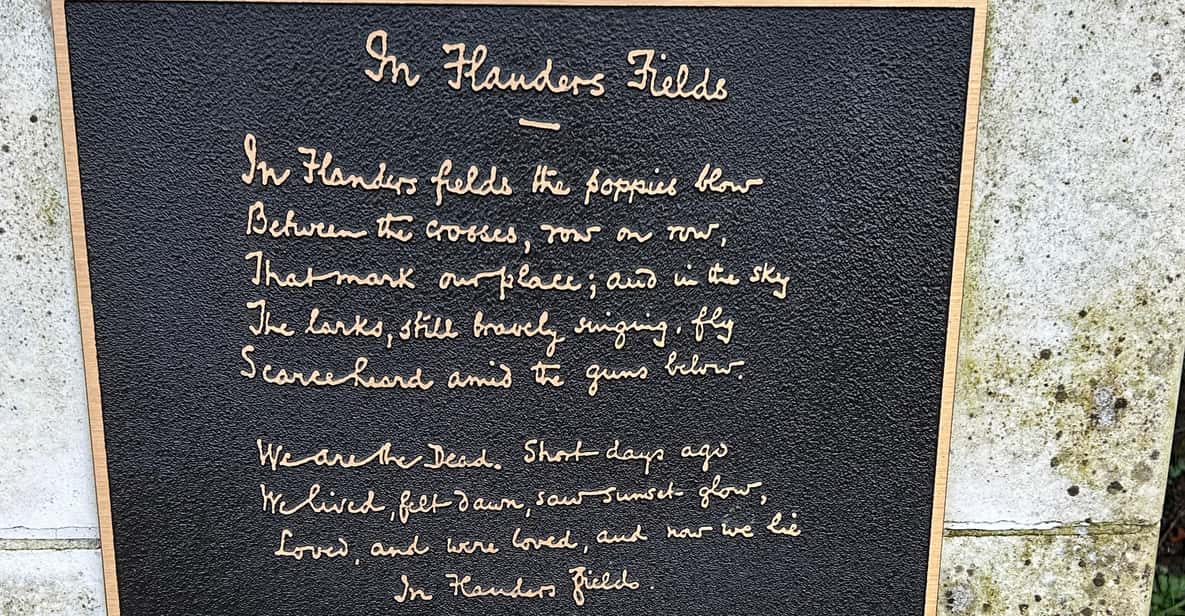 In Flanders Fields
In Flanders fields the poppies blow
Between the crosses, row on row,
That mark our place; and in the sky
The larks, still bravely singing, fly
Scarce heard amid the guns below.
We are the Dead. Short days ago
We lived, felt dawn, saw sunset glow,
Loved, and were loved, and now we lie
In Flanders Fields.